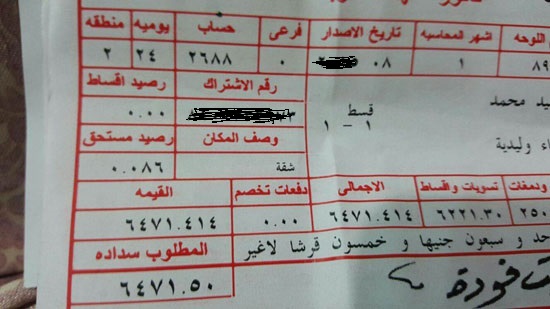 اللوحه اشهر المحاسبه تاريخ الاصدار فرعى حساب يوميه منطقه
٨٩ ١ ٠٨ ٠ ٢٦٨٨ ٢٤ ٢
رقم الاشتراك رصيد اقساط
يد محمد قسط ٠.٠٠
١ - ١
وصف المكان رصيد مستحق
اء وليدية شقة ٠.٠٨٦
ودمغات تسويات واقساط الاجمالى دفعات تخصم القيمه
٢٥٠ ٦٢٢١.٣٠ ٦٤٧١.٤١٤ ٠.٠٠ ٦٤٧١.٤١٤
حد و سبعون جنيها و خمسون قرشا لاغير المطلوب سداده
٦٤٧١.٥٠
فودة